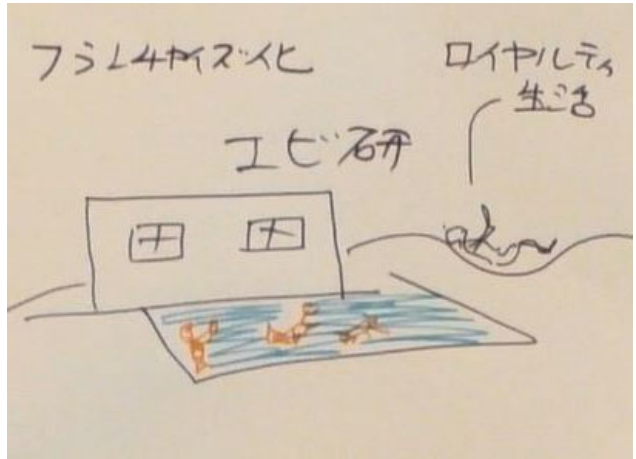 フランチャイズ化
ロイヤルティ
生活
エビ研